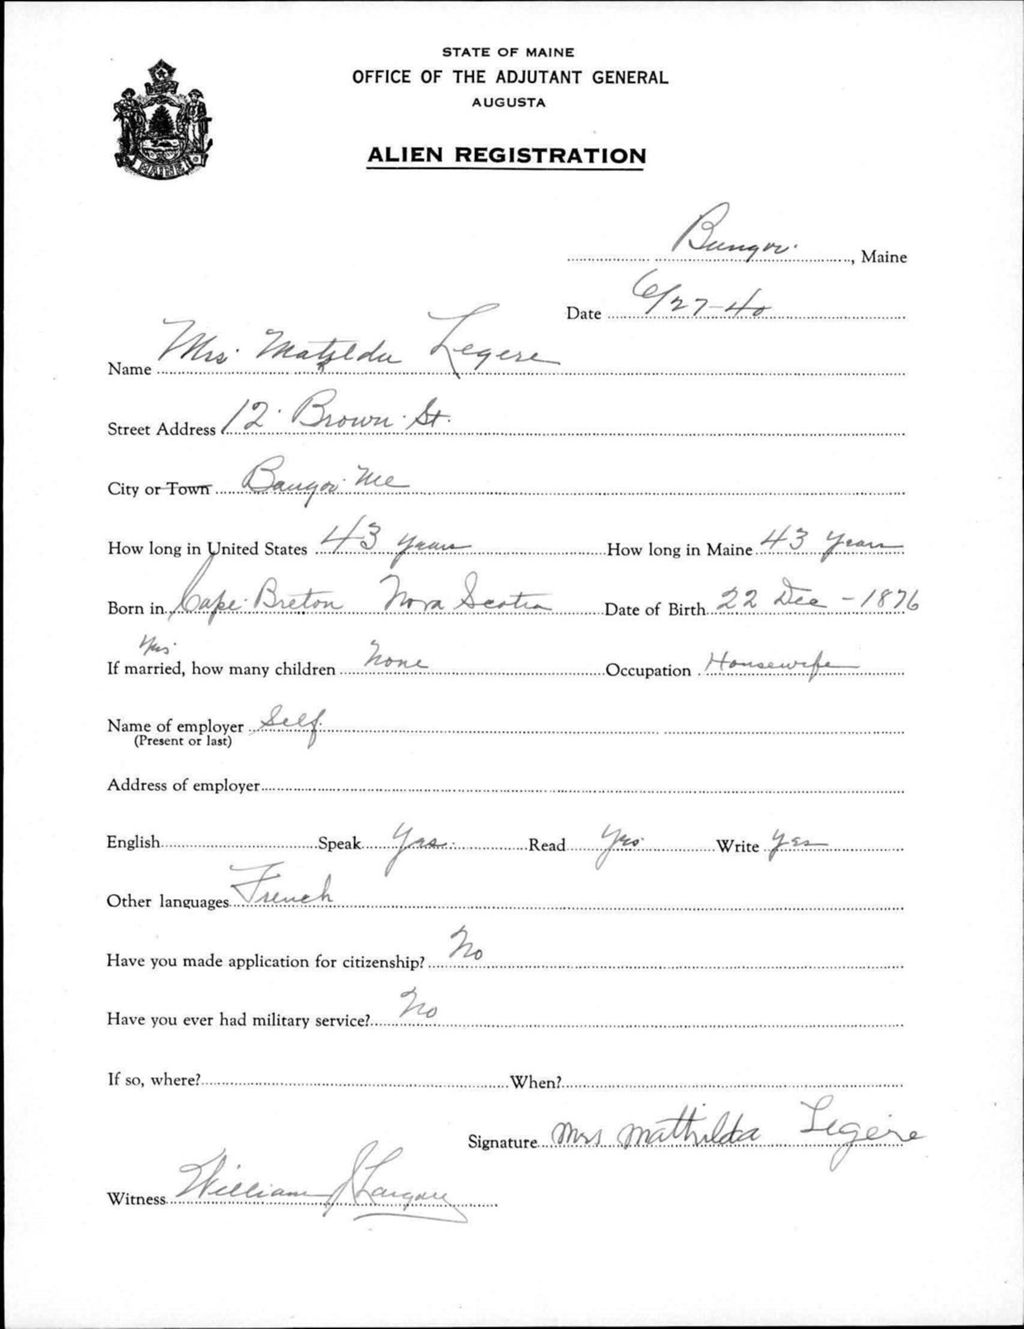 STATE OF MAINE
OFFICE OF THE ADJUTANT GENERAL
AUGUSTA
ALIEN REGISTRATION
MAINE
Bangor, Maine
Date 6/27-40
Name Mrs. Matilda Legere
Street Address 12 Brown St.
City or Town Bangor Me
How long in United States 43 years How long in Maine 43 years
Born in Cape Breton Nova Scotia Date of Birth 22 Dec - 1876
Yes
If married, how many children None Occupation Housewife
Name of employer Self
(Present or last)
Address of employer
English Speak Yes. Read Yes Write Yes
Other languages French
Have you made application for citizenship? No
Have you ever had military service? No
If so, where? When?
Signature Mrs Mathilda Legere
Witness William J